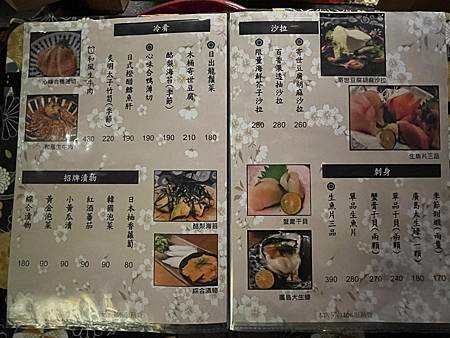 冷肴
日出龍鬚菜
木桶寄世豆腐
酪梨海苔(季節)
心味合鴨薄切
日式橙醋鱈魚肝
炙明太子竹筍(季節)
和風生牛肉
430 220 190 190 190 210 180
心味合鴨薄切
和風生牛肉
招牌漬物
日本柚香蘿蔔
韓國泡菜
紅酒蕃茄
小黃瓜漬
黃金泡菜
綜合漬物
180 90 90 90 80 80
酪梨海苔
綜合漬物
沙拉
寄世豆腐胡麻沙拉
限量海鮮芥子沙拉
260 280 260
寄世豆腐胡麻沙拉
生魚片三品
刺身
季節甜蝦(兩隻)
廣島大生蠔(一顆)
單品干貝(兩顆)
蟹膏干貝(兩顆)
單品生魚片
生魚片三品
390 280 270 240 180
蟹膏干貝
廣島大生蠔